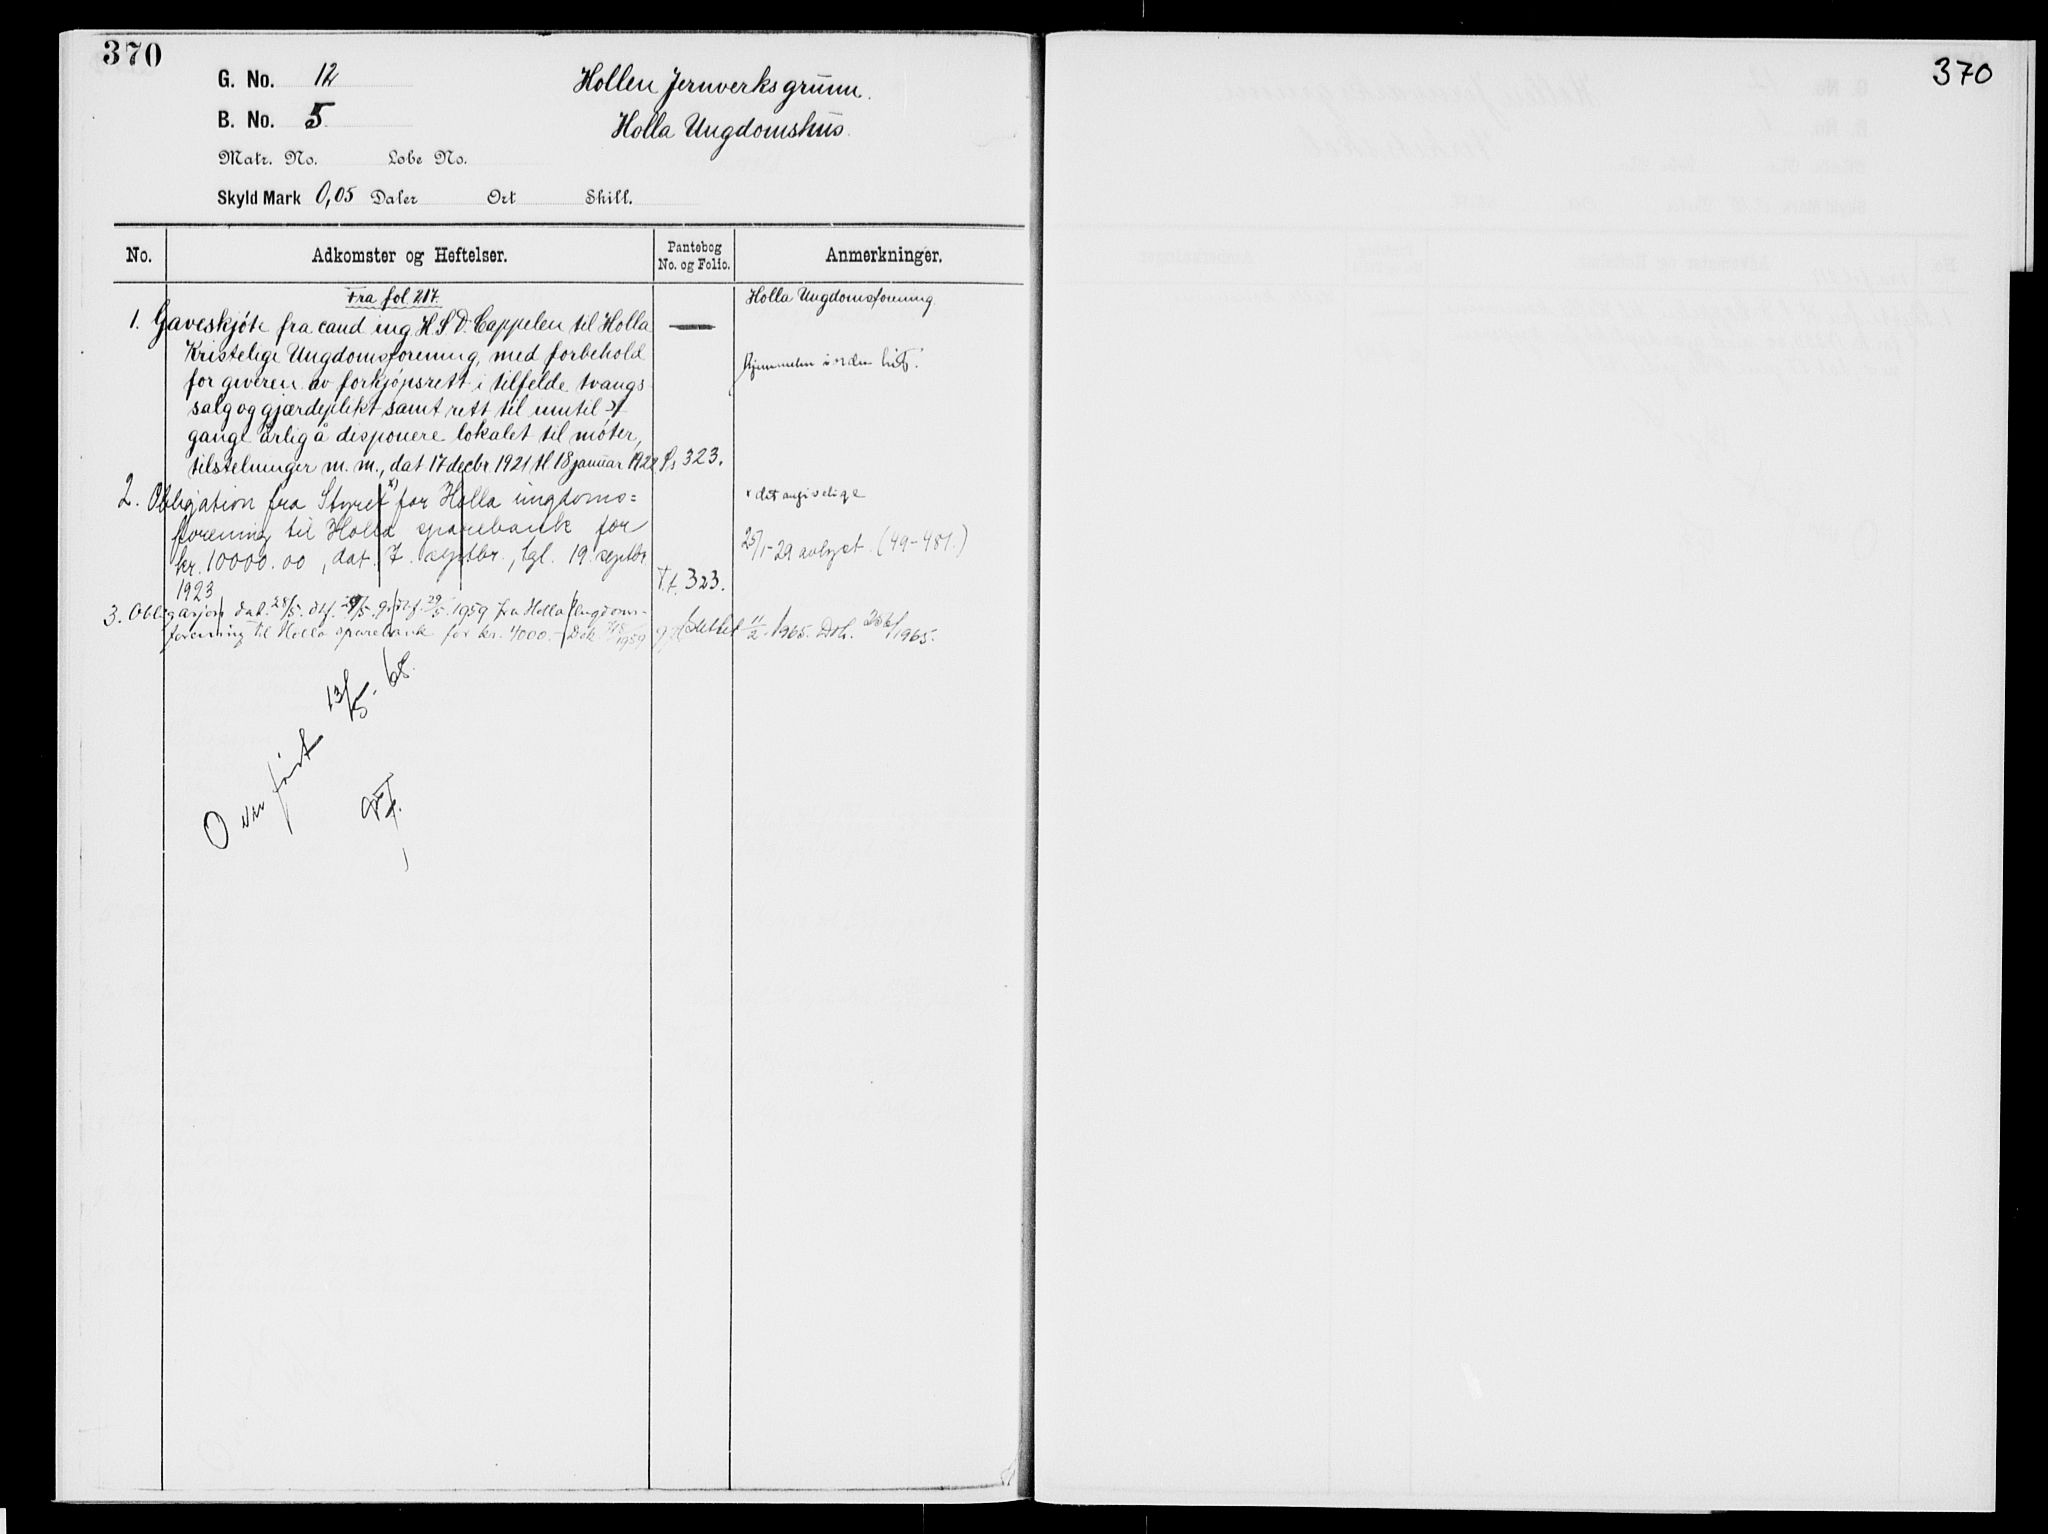 370
G. No. 12
Hollen Jernverksgrunn.
B. No. 5
Holla Ungdomshus.
Matr. No. Løbe No.
Skyld Mark 0,05 Daler Ort Skill.
No. Adkomster og Heftelser. Pantebog No. og Folio. Anmerkninger.
Fra fol. 217.
Holla Ungdomsforening.
1. Gaveskjøte fra cand ing H S D. Cappelen til Holla
Kristelige Ungdomsforening, med forbehold
for giveren av forkjøpsrett i tilfelde tvangs
salg og gjærdeplikt samt rett til inntil
gange årlig å disponere lokalet til møter,
tilstelninger m. m., dat 17 decbr. 1921 tl. 18 januar 1922. 323.
Hjemmelen i orden
2. Obligation fra Styret x) for Holla ungdoms=
forening til Holla sparebank for
kr. 10000.00, dat. 7. septbr., tgl. 19. septbr
1923
323.
x det angivelige
25/1-29 avlyst. (49-481.)
3. Obligasjon dat. 28/5. 29/5. 1959 fra Holla Ungdoms-
forening til Holla sparebank for kr. 4000.- Dok 1959
slettet 11/2. 1965. Dok. 1965.
Overført 13/5. 68.
370